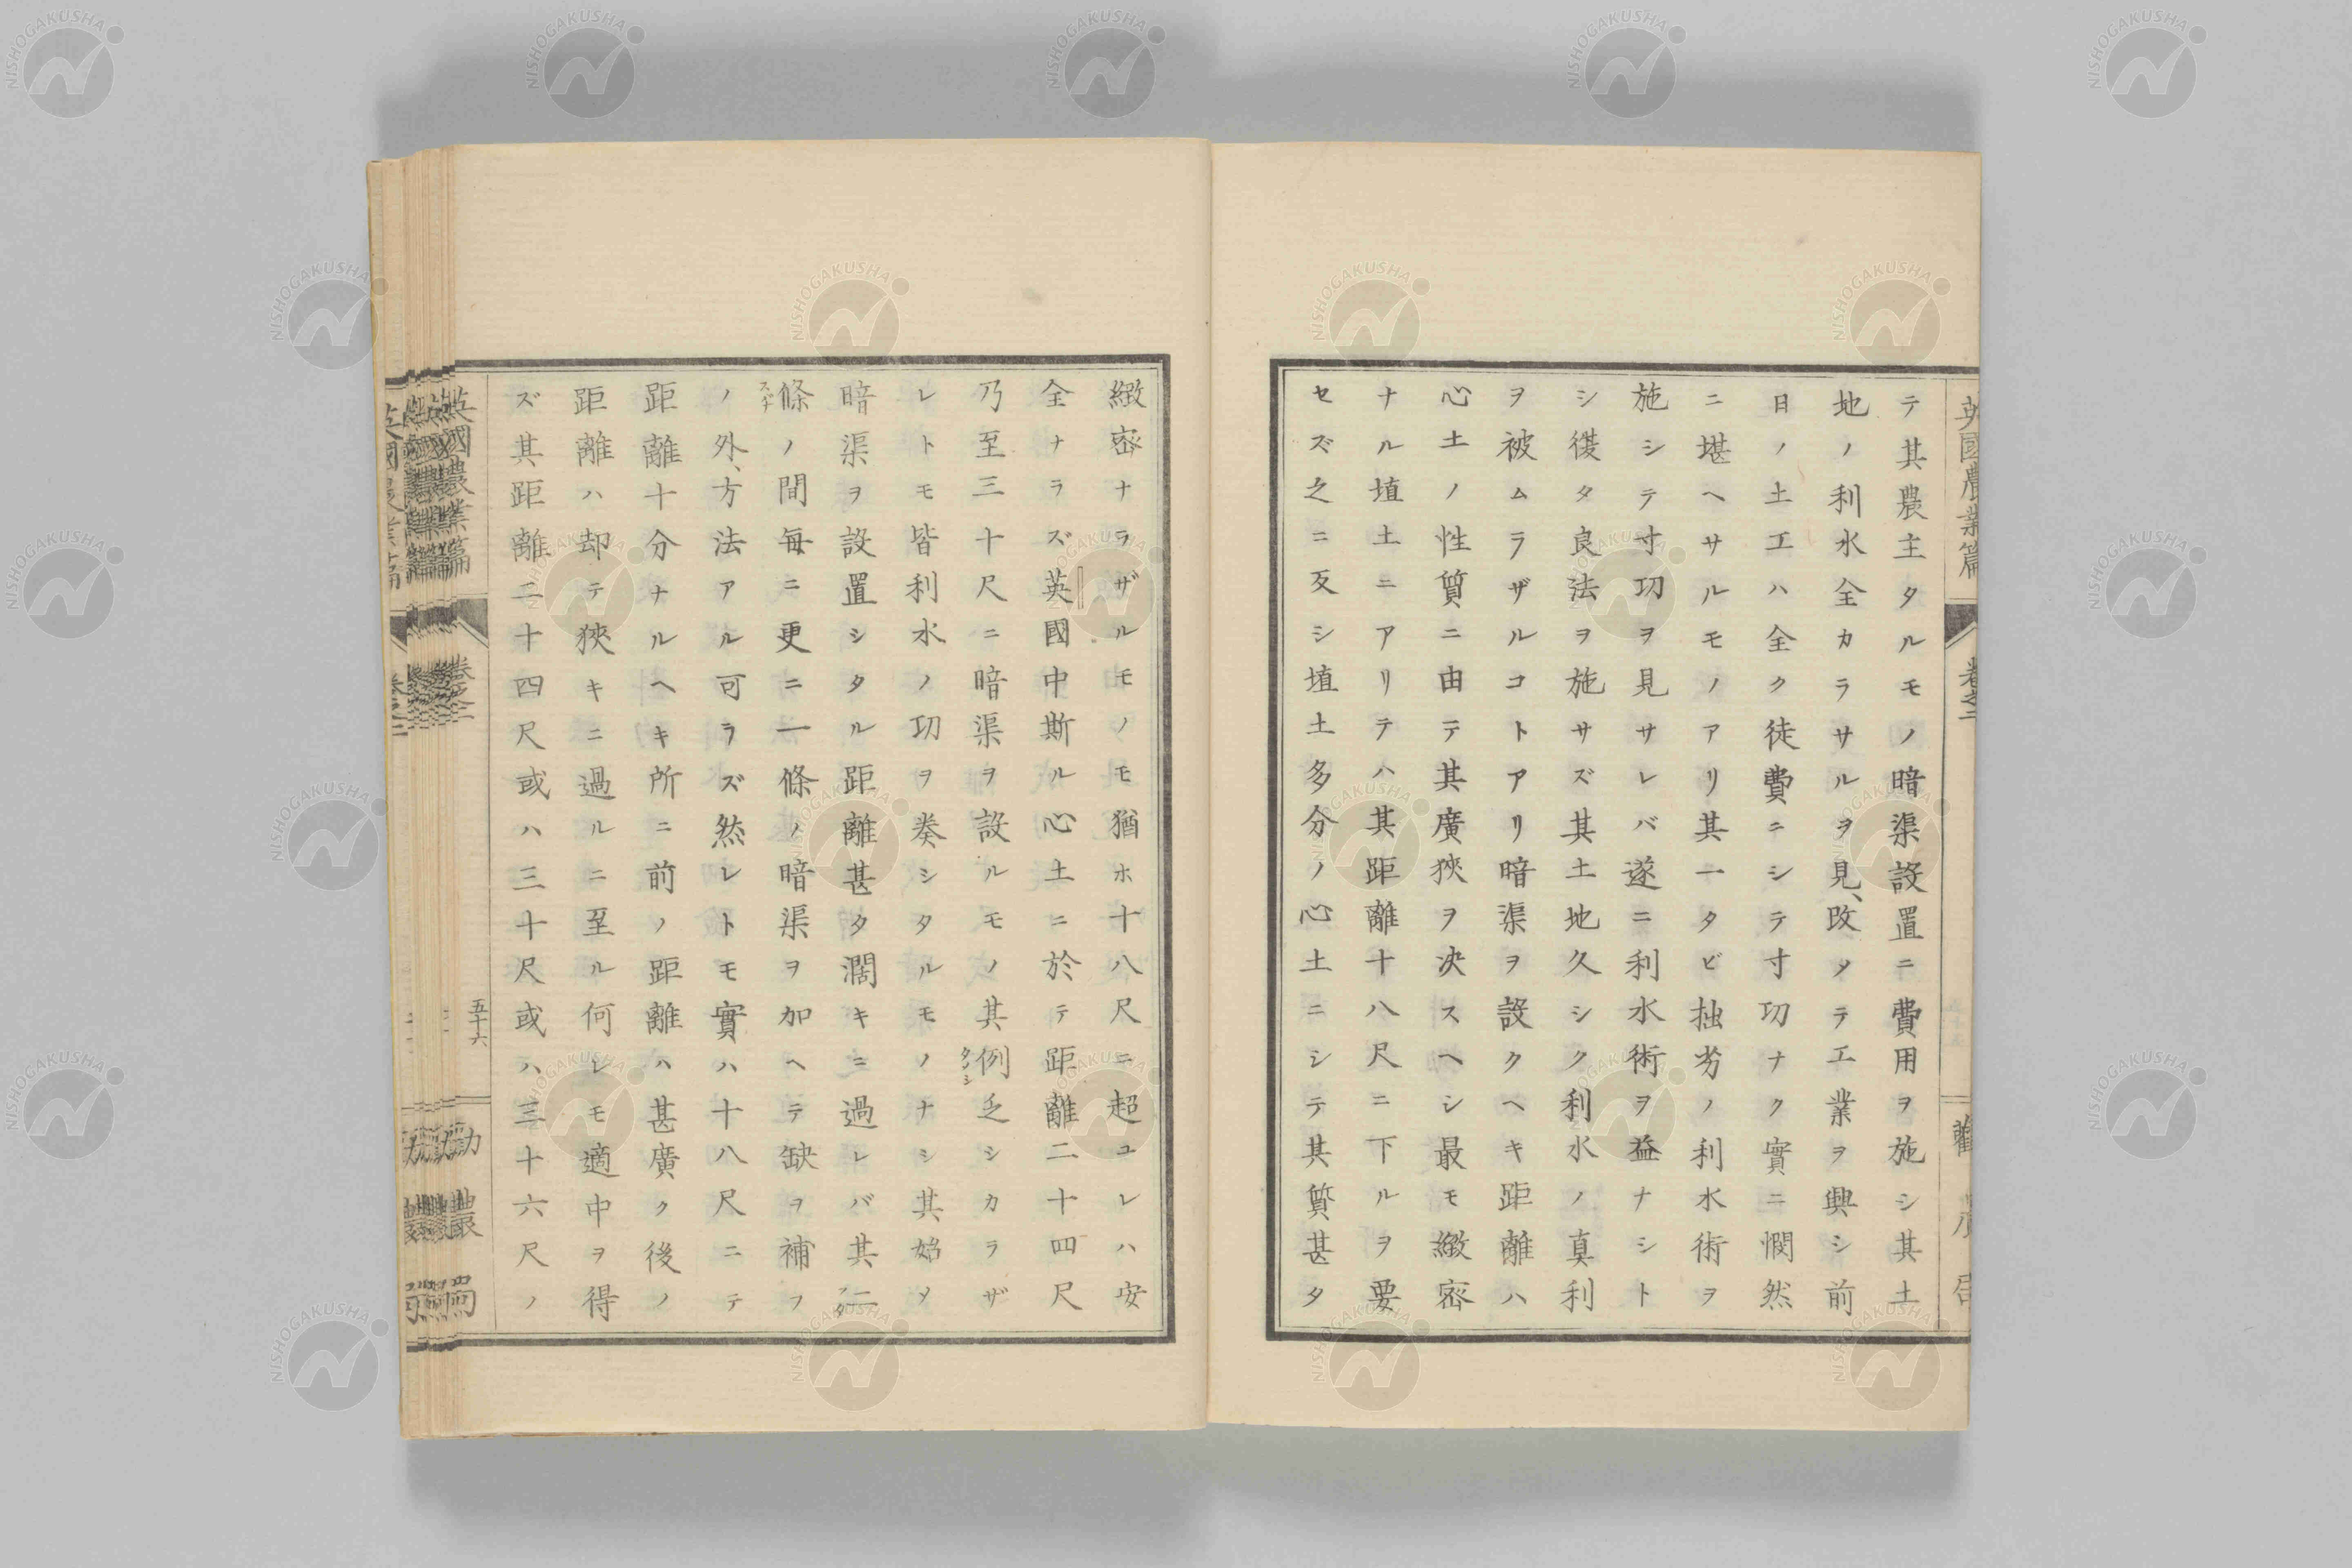 英國農業篇 卷之二 勸農局
テ其農主タルモノ暗渠設置ニ費用ヲ施シ其土
地ノ利水全カラサルヲ見、改メテ工業ヲ興シ前
日ノ土工ハ全ク徒費ニシテ寸功ナク實ニ憫然
ニ堪ヘサルモノアリ其一タビ拙劣ノ利水術ヲ
施シテ寸功ヲ見サレバ遂ニ利水術ヲ益ナシト
シ復タ良法ヲ施サズ其土地久シク利水ノ真利
ヲ被ムラザルコトアリ暗渠ヲ設クヘキ距離ハ
心土ノ性質ニ由テ其廣狹ヲ决スヘシ最モ緻密
ナル埴土ニアリテハ其距離十八尺ニ下ルヲ要
セズ之ニ反シ埴土多分ノ心土ニシテ其質甚タ
緻密ナラザルモノモ猶ホ十八尺ニ超ユレハ安
全ナラズ英國中斯ル心土ニ於テ距離二十四尺
乃至三十尺ニ暗渠ヲ設ルモノ其例乏シカラザ
レトモ皆利水ノ功ヲ奏シタルモノナシ其始メ
暗渠ヲ設置シタル距離甚タ濶キニ過レバ其二
條ノ間毎ニ更ニ一條ノ暗渠ヲ加ヘテ缺ヲ補フ
ノ外、方法アル可ラズ然レトモ實ハ十八尺ニテ
距離十分ナルヘキ所ニ前ノ距離ハ甚廣ク後ノ
距離ハ却テ狹キニ過ルニ至ル何レモ適中ヲ得
ズ其距離二十四尺或ハ三十尺或ハ三十六尺ノ
英國農業篇 卷之二 五十六 勸農局
NISHOGAKUSHA